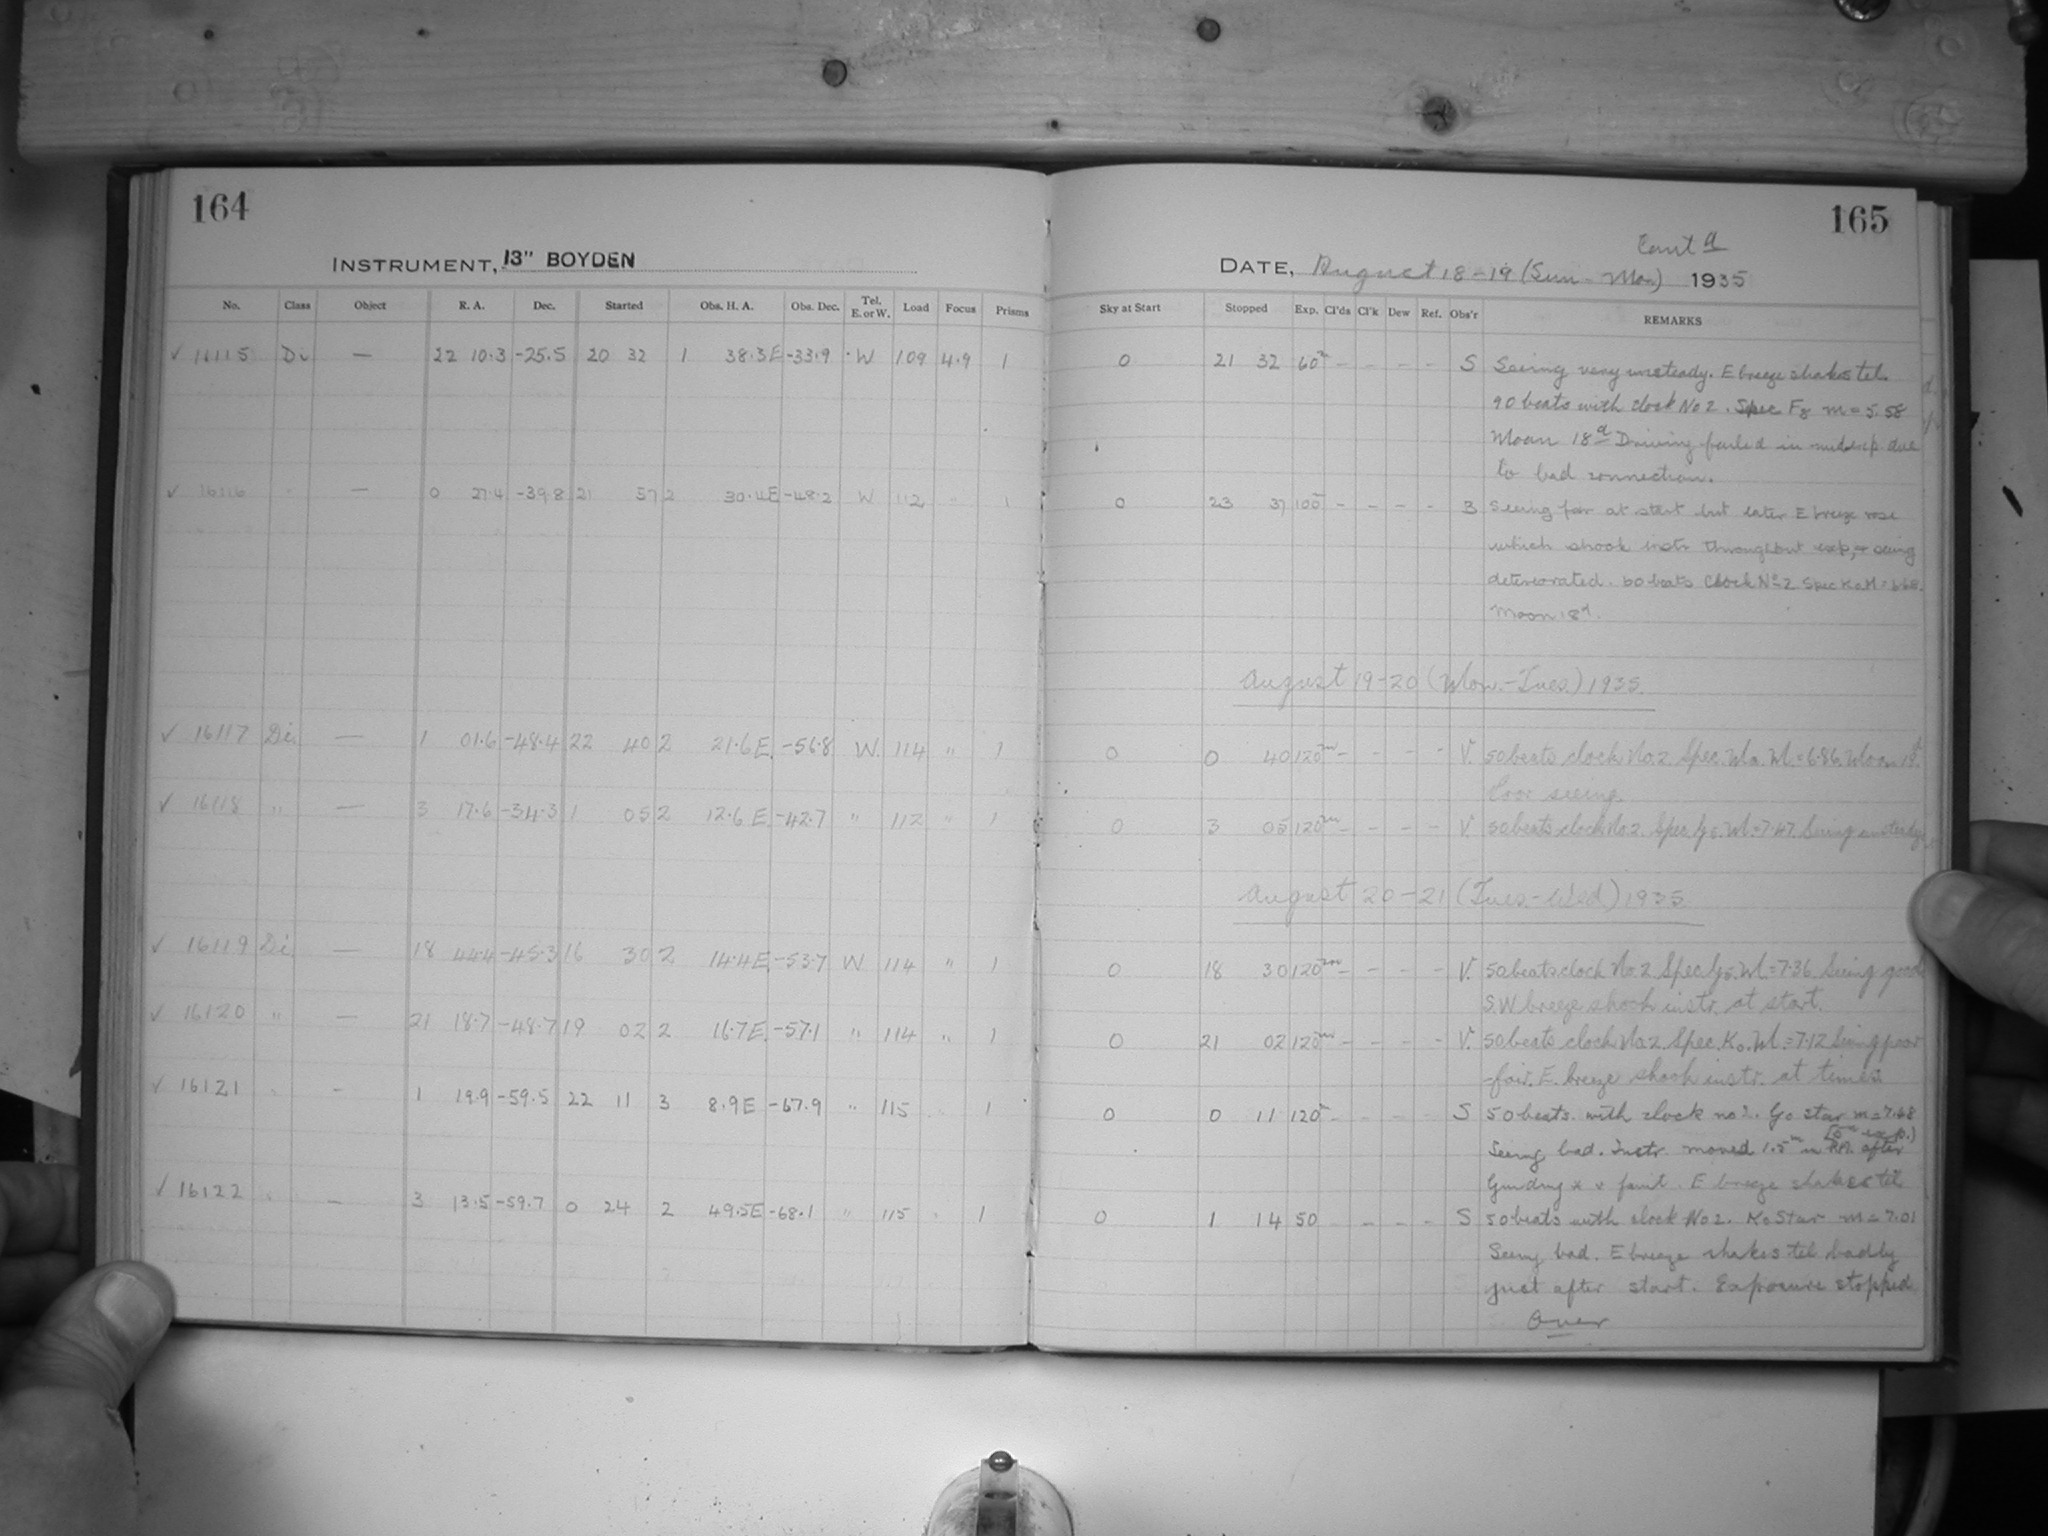 164
INSTRUMENT, 13" BOYDEN
No. Class Object R. A. Dec. Started Obs. H. A. Obs. Dec. Tel. E. or W. Load Focus Prisms
✓ 16115 Di — 22 10.3 -25.5 20 32 1 38.3E -33.9 W 109 4.9 1
✓ 16116 " — 0 27.4 -39.8 21 57 2 30.4E -48.2 W 112 " 1
✓ 16117 Di — 1 01.6 -48.4 22 40 2 21.6E. -56.8 W. 114 " 1
✓ 16118 " — 3 17.6 -34.3 1 05 2 12.6E. -42.7 " 112 " 1
✓ 16119 Di — 18 44.4 -45.3 16 30 2 14.4E. -53.7 W 114 " 1
✓ 16120 " — 21 18.7 -48.7 19 02 2 16.7E. -57.1 " 114 " 1
✓ 16121 " — 1 19.9 -59.5 22 11 3 8.9E -67.9 " 115 1
✓ 16122 " — 3 13.5 -59.7 0 24 2 49.5E -68.1 " 115 " 1
165
Cont d
DATE, August 18-19 (Sun - Mon) 1935
Sky at Start Stopped Exp. Cl'ds Cl'k Dew Ref. Obs'r REMARKS
0 21 32 60m - - - - S Seeing very unsteady. E breeze shakes tel.
90 beats with clock No 2. Spec F8 m = 5.58
Moon 18d Driving failed in mid exp. due
to bad connection.
0 23 37 100m - - - - B Seeing fair at start but later E breeze rose
which shook instr throughout exp, & seeing
deteriorated. 50 beats Clock No 2 Spec K0 M = 6.68.
Moon 18d.
August 19-20 (Mon.-Tues.) 1935.
0 0 40 120m - - - - V. 50 beats clock No. 2. Spec. Ma. M. = 6.86. Moon 19d.
Poor seeing.
0 3 05 120m - - - - V. 50 beats clock No. 2. Spec. G5. M. = 7.47. Seeing unsteady
August 20-21 (Tues.-Wed) 1935
0 18 30 120m - - - - V. 50 beats clock No. 2 Spec. G5. M. = 7.36. Seeing good
S.W breeze shook instr. at start.
0 21 02 120m - - - - V. 50 beats clock No. 2 Spec. K0. M. = 7.12 Seeing poor
-fair. E. breeze shook instr. at times.
0 0 11 120m - - - - S 50 beats. with clock no 2. G0 star m = 7.68
Seeing bad. Instr. moved 1.5m in RA. after
Guiding * v faint. E breeze shakes tel
0 1 14 50 - - - - S 50 beats with clock No 2. K0 Star m = 7.01
Seeing bad. E breeze shakes tel badly
just after start. Exposure stopped
Over